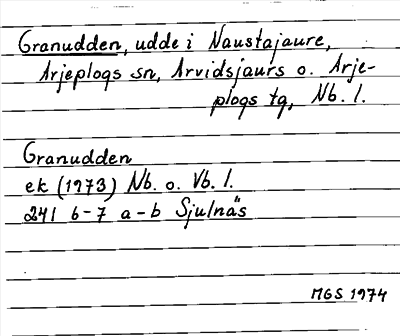 Granudden, udde i Naustajaure,
Arjeplogs sn, Arvidsjaurs o. Arje-
plogs tg, Nb. l.
Granudden
ek (1973) Nb. o. Vb. l.
241 6-7 a-b Sjulnäs
MGS 1974